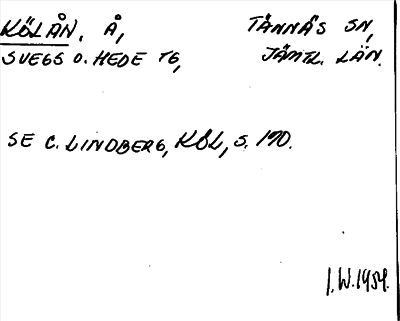 KÖLÅN. Å, TÄNNÄS SN,
SVEGS O. HEDE TG, JÄMTL. LÄN.
SE C. LINDBERG, KÖL, S. 170.
I.W. 1954.